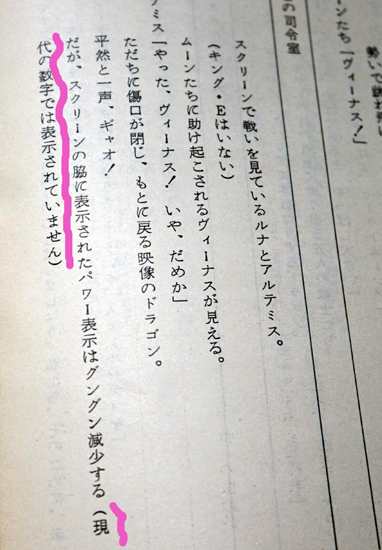 ーンたち「ヴィーナス！」
の司令室
スクリーンで戦いを見ているルナとアルテミス。
(キング・Eはいない)
ムーンたちに助け起こされるヴィーナスが見える。
テミス「やった、ヴィーナス！　いや、だめか」
ただちに傷口が閉じ、もとに戻る映像のドラゴン。
平然と一声、ギャオ！
だが、スクリーンの脇に表示されたパワー表示はグングン減少する(現
代の数字では表示されていません)